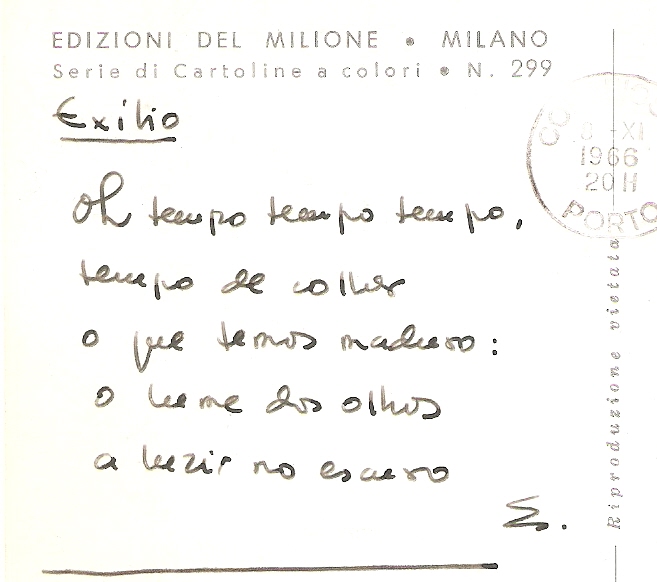 EDIZIONI DEL MILIONE • MILANO
Serie di Cartoline a colori • N. 299
Exílio
Oh tempo tempo tempo,
tempo de colher
o que temos maduro:
o lume dos olhos
a luzir no escuro
E.
XI
1966
20 H
PORTO
Riproduzione vietata